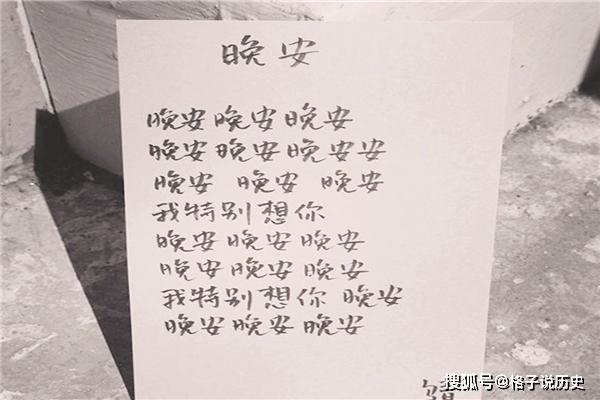 晚安
晚安晚安晚安
晚安晚安晚安安
晚安 晚安 晚安
我特别想你
晚安晚安晚安
晚安晚安晚安
我特别想你 晚安
晚安晚安晚安
搜狐号@格子说历史